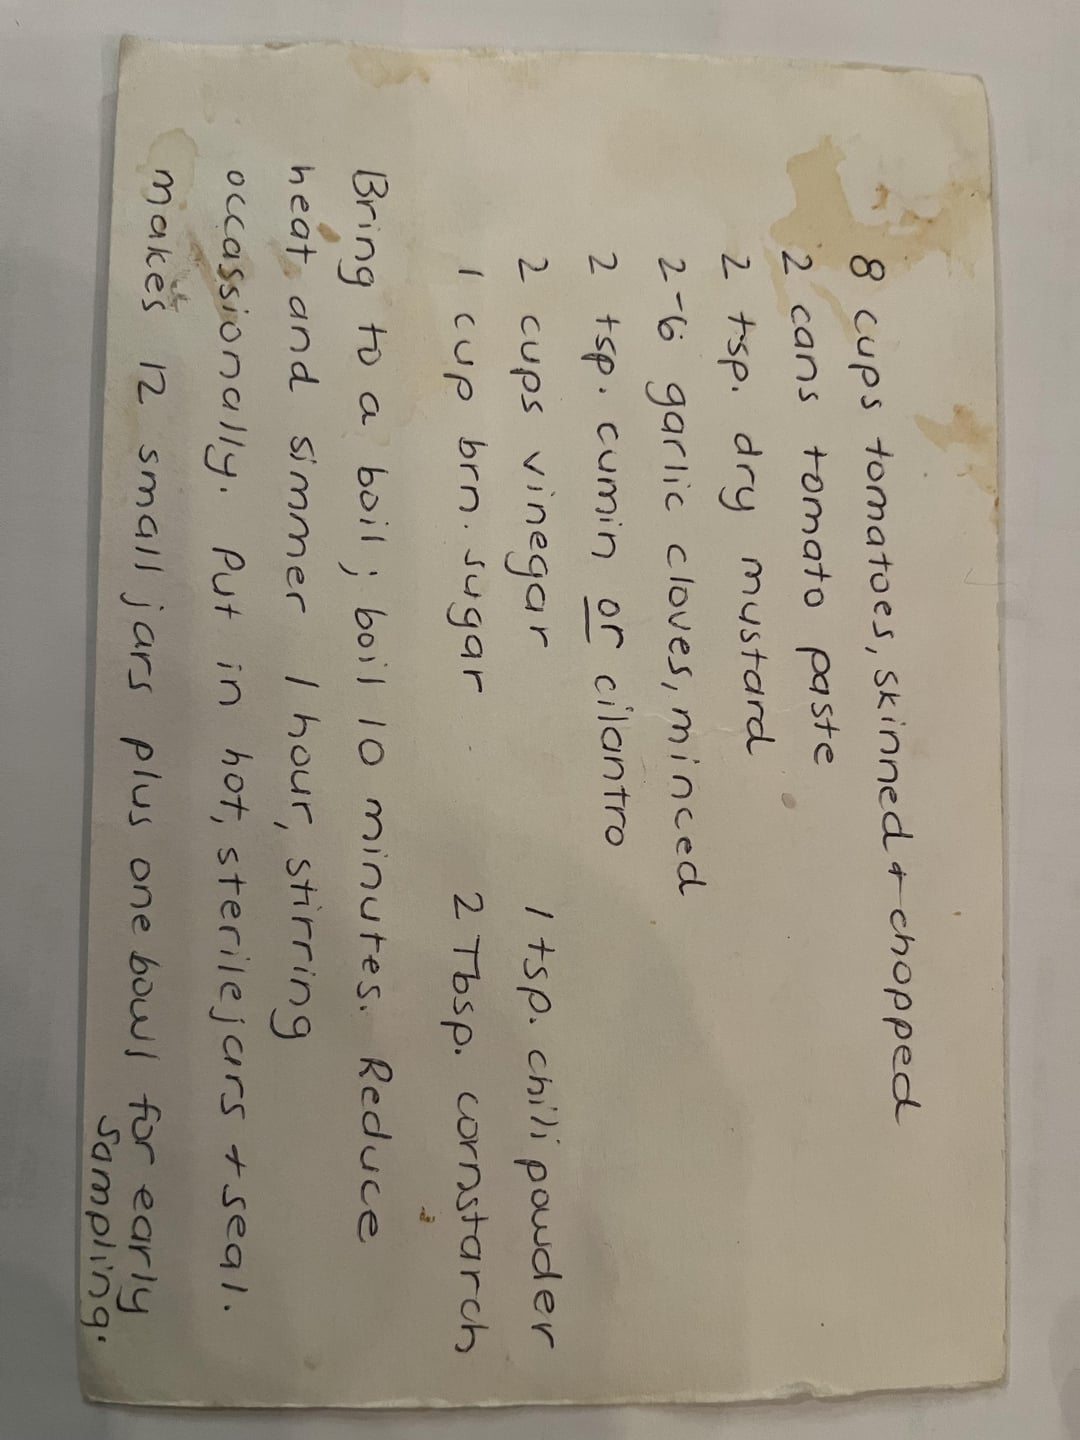 8 cups tomatoes, skinned + chopped
2 cans tomato paste
2 tsp. dry mustard
2-6 garlic cloves, minced
2 tsp. cumin or cilantro
2 cups vinegar 1 tsp. chili powder
1 cup brn. sugar 2 Tbsp. cornstarch
Bring to a boil; boil 10 minutes. Reduce
heat and simmer 1 hour, stirring
occassionally. Put in hot, sterile jars + seal.
makes 12 small jars plus one bowl for early
sampling.